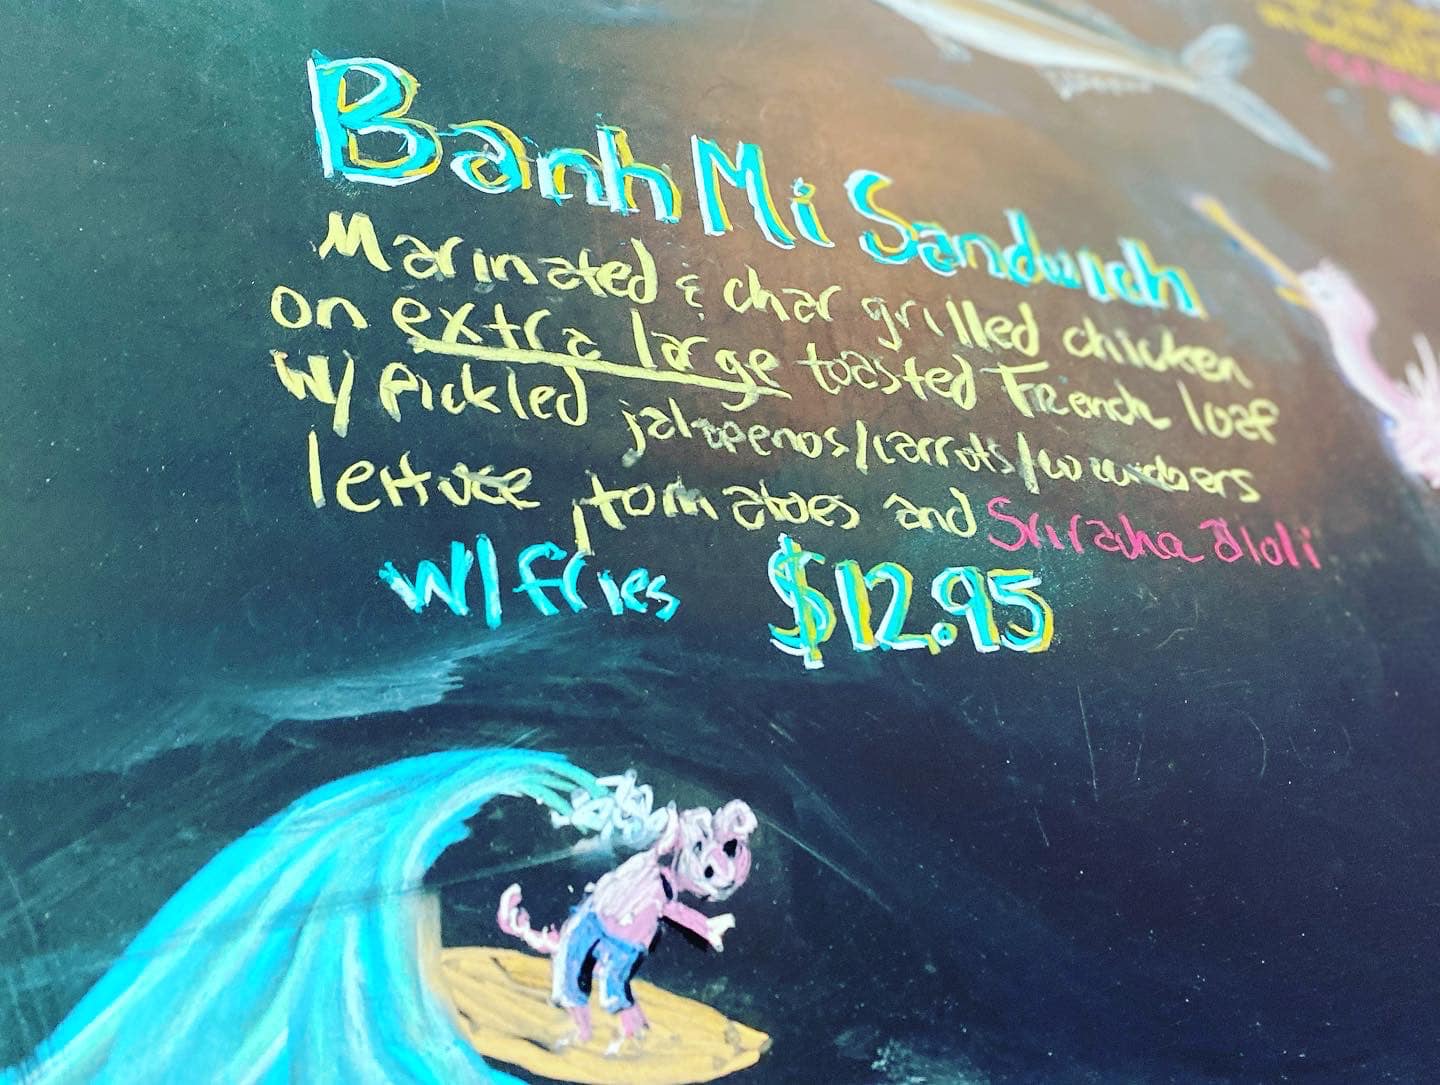 Banh Mi Sandwich
Marinated & char grilled chicken
on extra large toasted French loaf
w/ pickled jalapenos/carrots/cucumbers
lettuce, tomatoes and Sriracha aioli
w/ fries $12.95